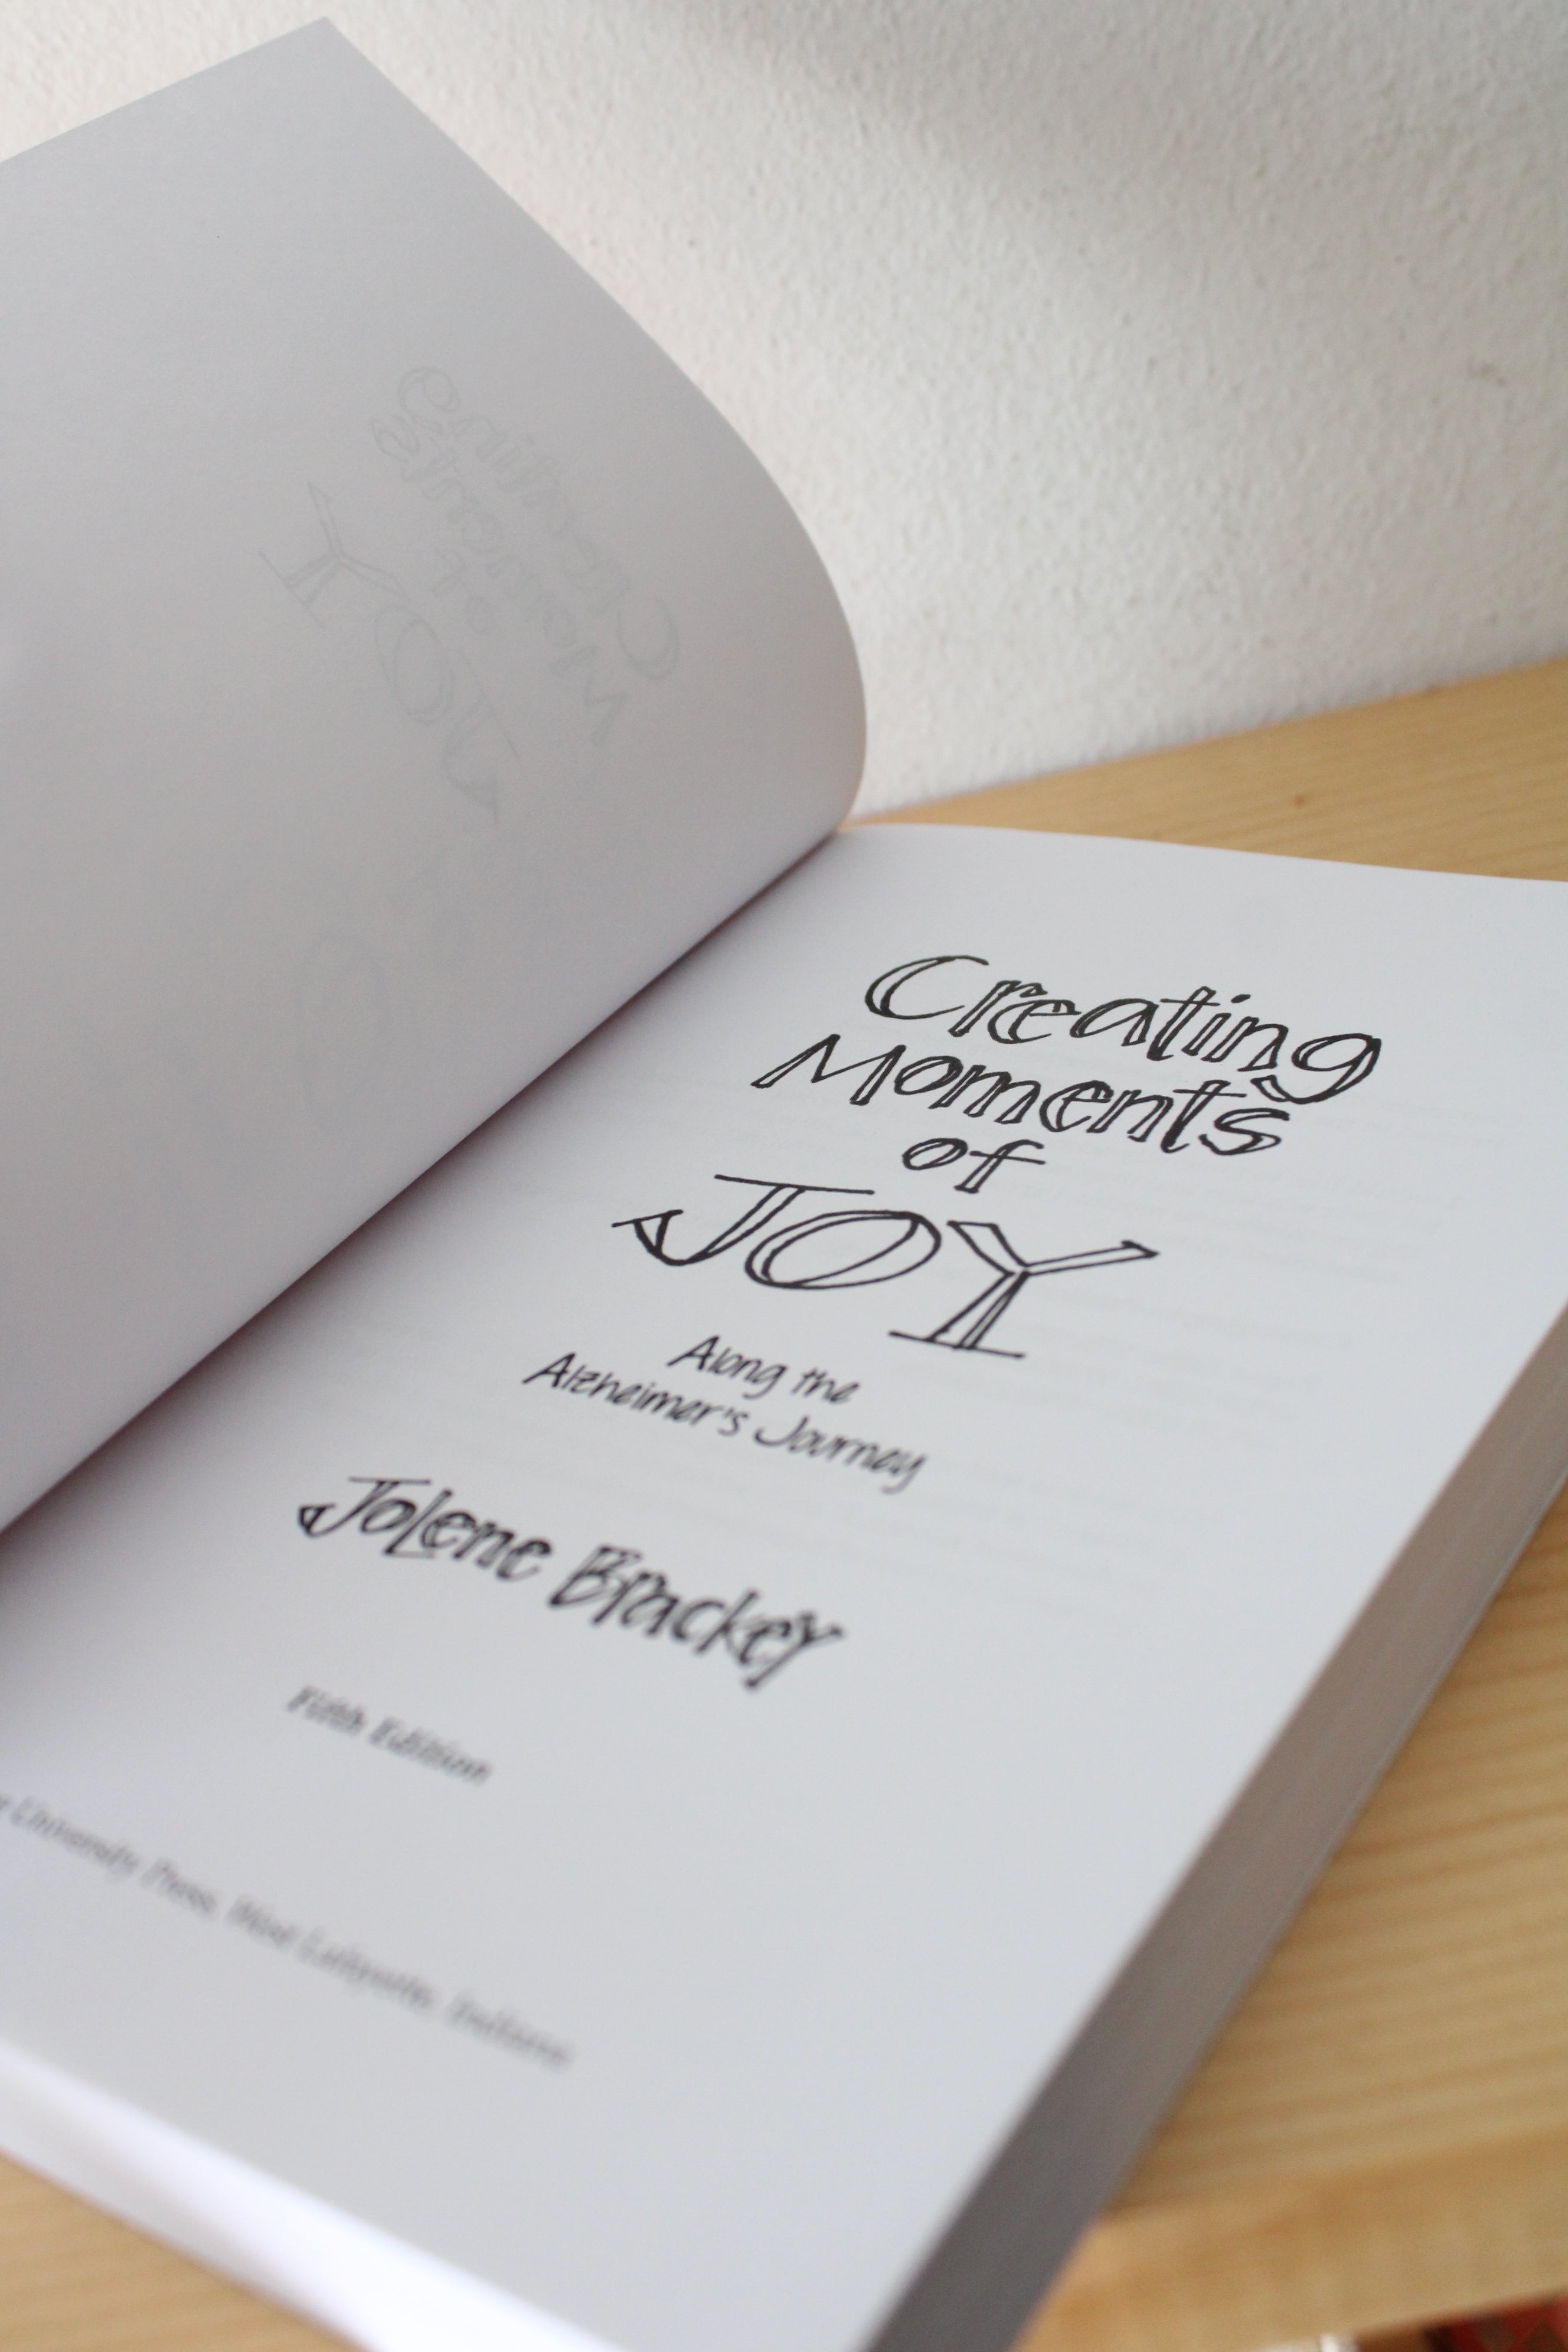 Creating
Moments
of
JOY
Along the
Alzheimer's Journey
Jolene Brackey
Fifth Edition
University Press, West Lafayette, Indiana
Creating
Moments
of
JOY